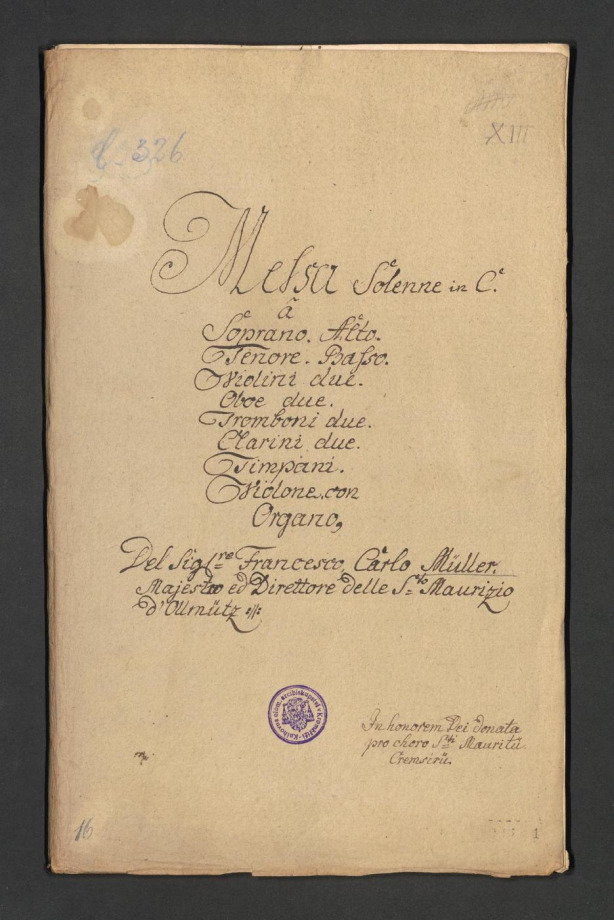 XIII
C. 326
Messa Solenne in C.
â
Soprano. Alto.
Tenore. Basso.
Violini due.
Oboe due.
Tromboni due.
Clarini due.
Timpani.
Violone con
Organo,
Del Sig:re Francesco Carlo Müller.
Majestro ed Direttore delle S:to Maurizio
d'Ollmütz
Knihovna olom. arcibiskupství v Kroměříži
In honorem Dei donata
pro choro S:ti Mauritii
Cremsirii.
16
1